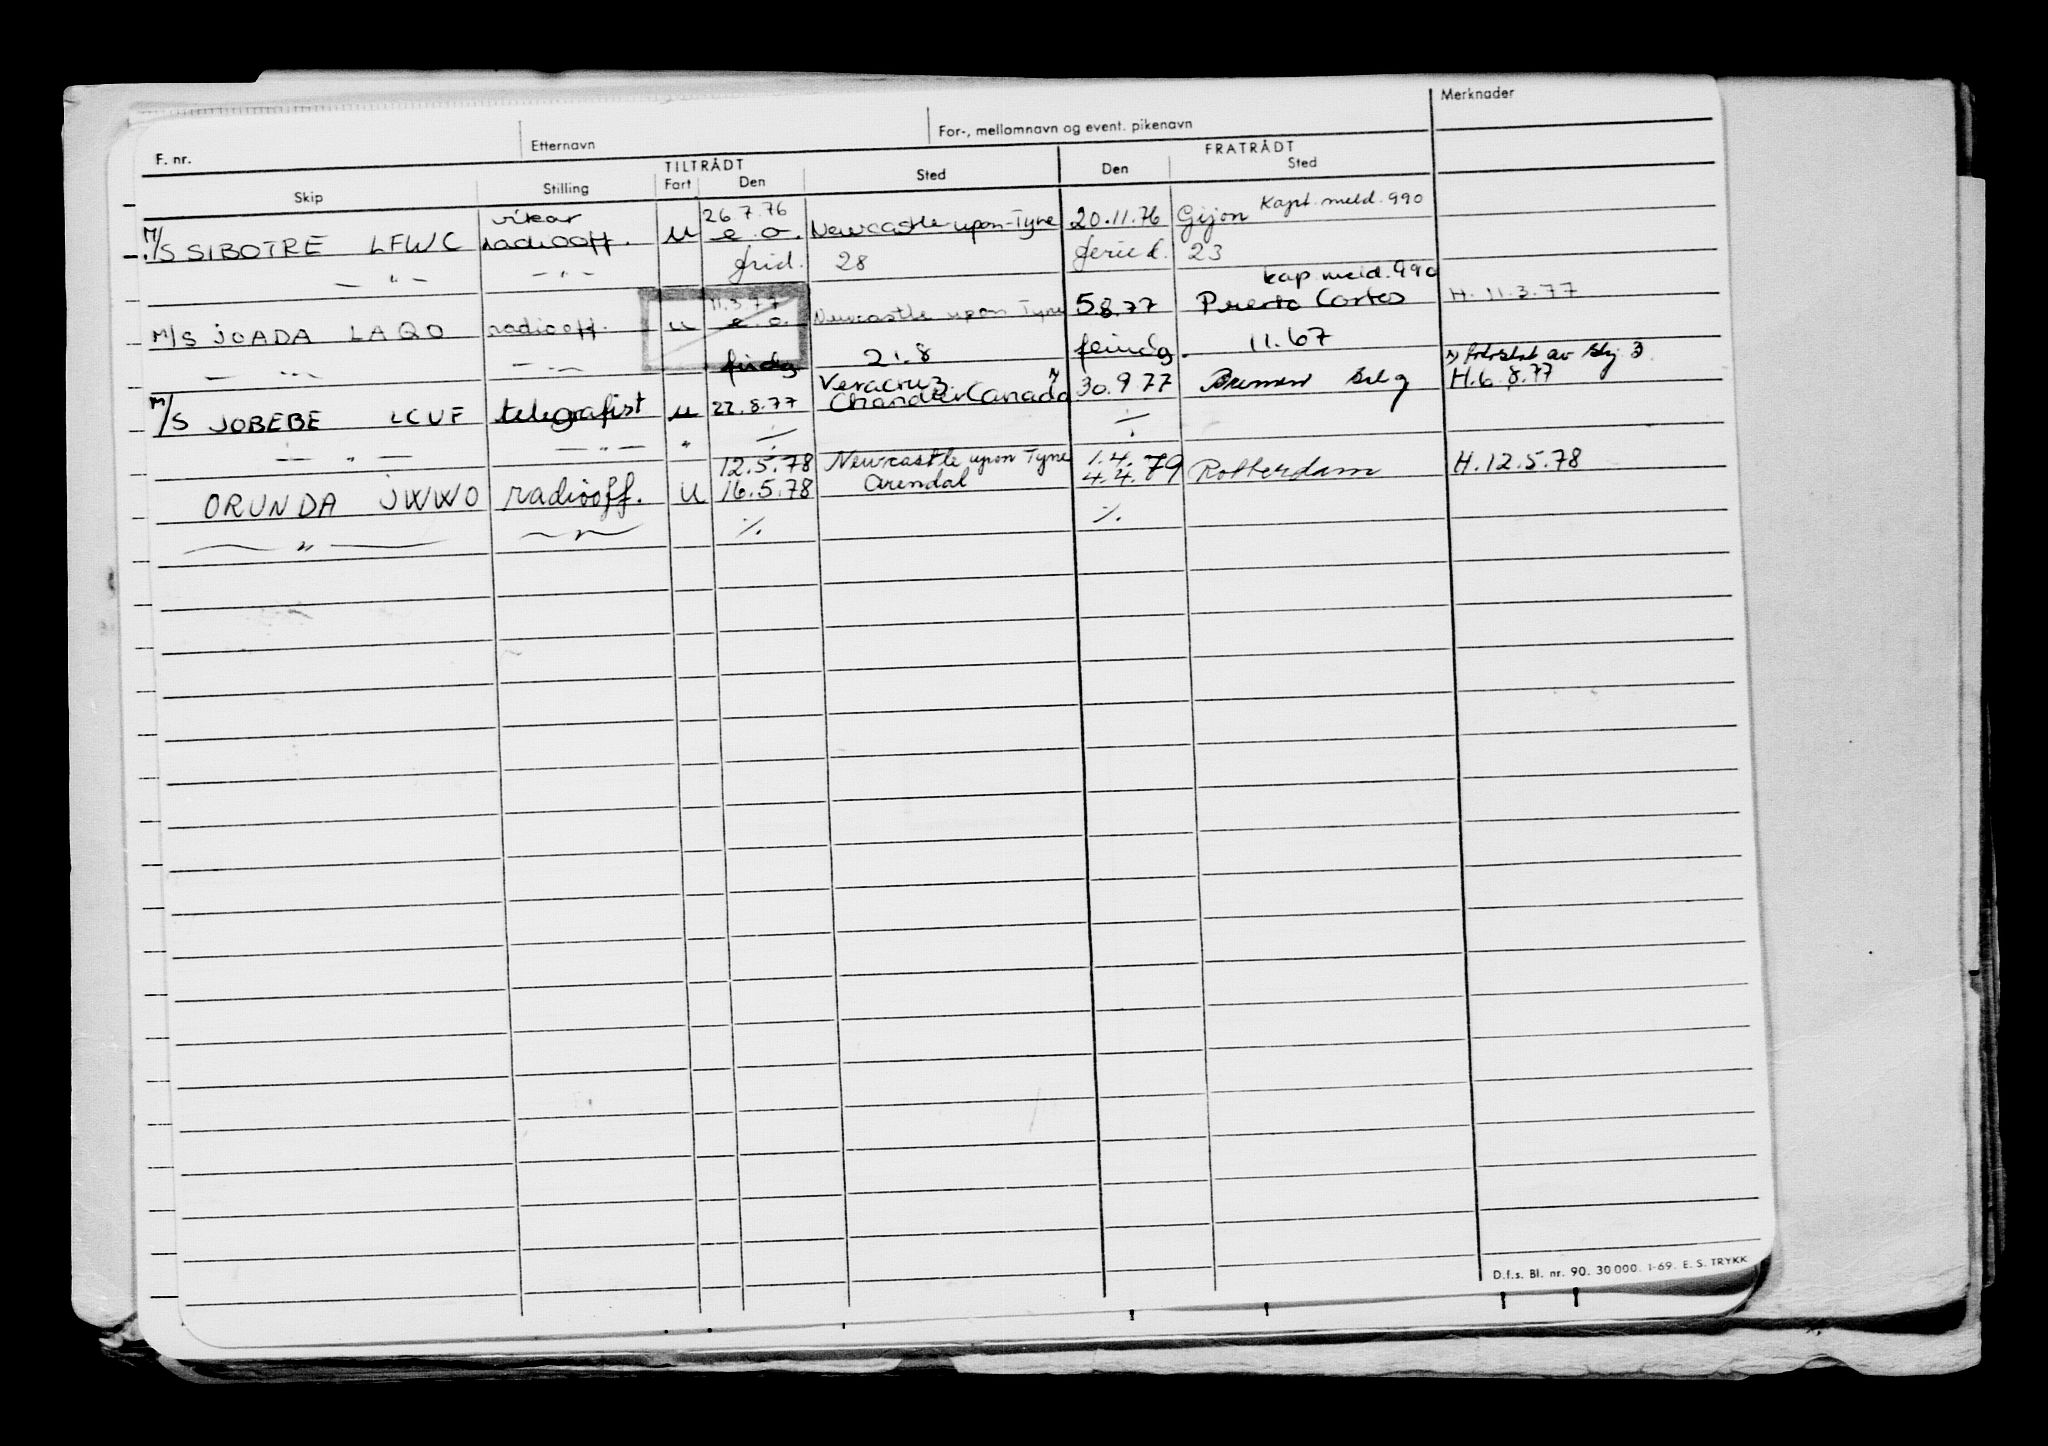 Merknader
F. nr. Etternavn For-, mellomnavn og event. pikenavn
TILTRÅDT FRATRÅDT
Skip Stilling Fart Den Sted Den Sted
vikar 26.7.76 Kapt. meld. 990
M/S SIBOTRE LFWC radiooff. u e.o. Newcastle upon-Tyne 20.11.76 Gijon
— " — — " — frid. 28 ferie d. 23
11.3.77 kap. meld. 990
M/S JOADA LAQO radiooff. u e.o. Newcastle upon Tyne 5.8.77 Puerto Cortes H. 11.3.77
— " — — " — fridg 21.8 feridg. 11.67
Veracruz x) x) fotostat av sbj. 3
M/S JOBEBE LCUF telegrafist u 22.8.77 Chandler Canada 30.9.77 Bremen H.6.8.77
— " — — " — " ./. ./.
12.5.78 Newcastle upon Tyne 1.4.79
ORUNDA JWWO radiooff. u 16.5.78 Arendal 4.4.79 Rotterdam H.12.5.78
— " — — " — ./. ./.
D.f.s. Bl. nr. 90. 30 000. 1-69. E. S. TRYKK